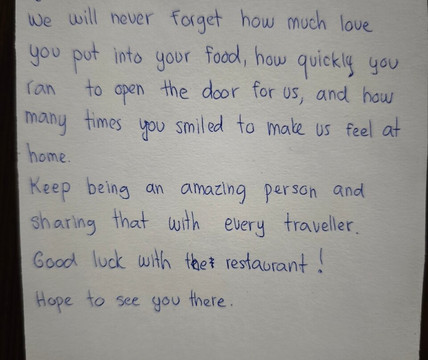 we will never forget how much love
you put into your food, how quickly you
ran to open the door for us, and how
many times you smiled to make us feel at
home.
Keep being an amazing person and
sharing that with every traveller.
Good luck with the restaurant!
Hope to see you there.